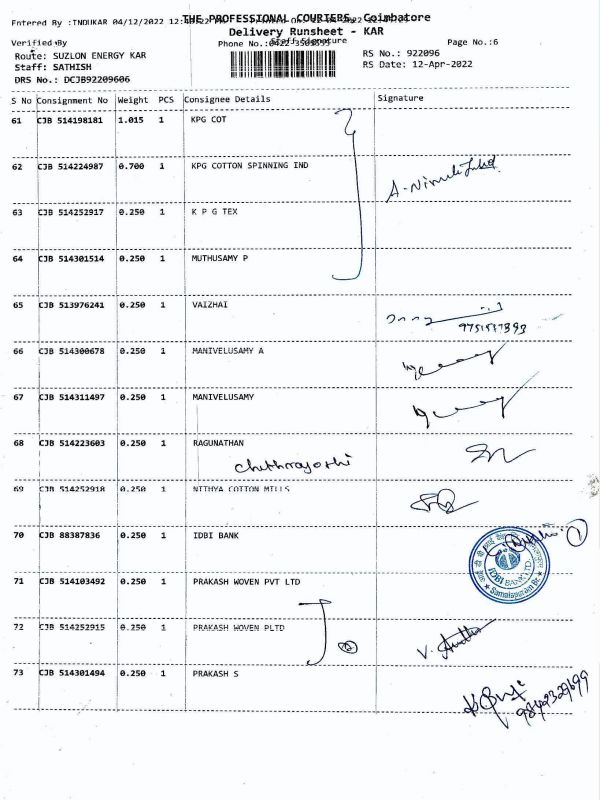 Entered By :INDUKAR 04/12/2022
THE PROFESSIONAL COURIERS, Coimbatore
Delivery Runsheet - KAR
Verified By
Staff Signature
Phone No.:
Page No.:6
Route: SUZLON ENERGY KAR
Staff: SATHISH
DRS No.: DCJB92209606
RS No.: 922096
RS Date: 12-Apr-2022
S No Consignment No Weight PCS Consignee Details Signature
61 CJB 514198181 1.015 1 KPG COT
62 CJB 514224987 0.700 1 KPG COTTON SPINNING IND
63 CJB 514252917 0.250 1 K P G TEX
64 CJB 514301514 0.250 1 MUTHUSAMY P
65 CJB 513976241 0.250 1 VAIZHAI
66 CJB 514300678 0.250 1 MANIVELUSAMY A
67 CJB 514311497 0.250 1 MANIVELUSAMY
68 CJB 514223603 0.250 1 RAGUNATHAN
69 CJB 514252918 0.250 1 NITHYA COTTON MILLS
70 CJB 88387836 0.250 1 IDBI BANK
IDBI BANK LTD.
Samalapuram Br.
71 CJB 514103492 0.250 1 PRAKASH WOVEN PVT LTD
72 CJB 514252915 0.250 1 PRAKASH WOVEN PLTD
73 CJB 514301494 0.250 1 PRAKASH S
9842329699